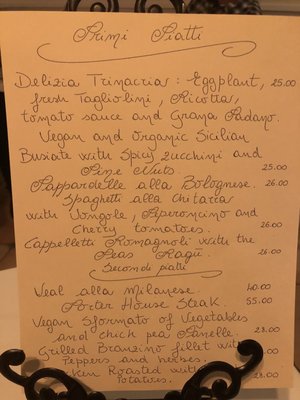 Primi Piatti
Delizia Trinacria: Eggplant, 25.00
fresh Tagliolini, Ricotta,
tomato sauce and Grana Padano.
Vegan and Organic Sicilian
Busiate with Spicy Zucchini and
Pine Nuts. 25.00
Pappardelle alla Bolognese. 26.00
Spaghetti alla Chitarra
with Vongole, Peperoncino and
Cherry tomatoes. 26.00
Cappelletti Romagnoli with the
Peas Ragù. 26.00
Secondi piatti
Veal alla Milanese. 40.00
Porter House Steak 55.00
Vegan Sformato of Vegetables
and chick pea Panelle. 28.00
Grilled Branzino fillet with
Peppers and herbes.
Roasted with
Potatoes. 28.00